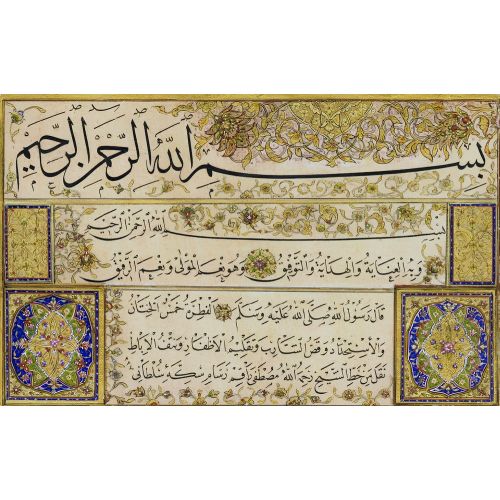 بسم الله الرحمن الرحيم
بسم الله الرحمن الرحيم
وبه العناية والهداية والتوفيق وهو نعم المولى ونعم الرفيق
قال رسول الله صلى الله عليه وسلم الفطرة خمس الختان
والاستحداد وقص الشارب وتقليم الأظفار ونتف الآباط
نقل من خط الشيخ رحمه الله مصطفى راقم رسام سكه سلطاني